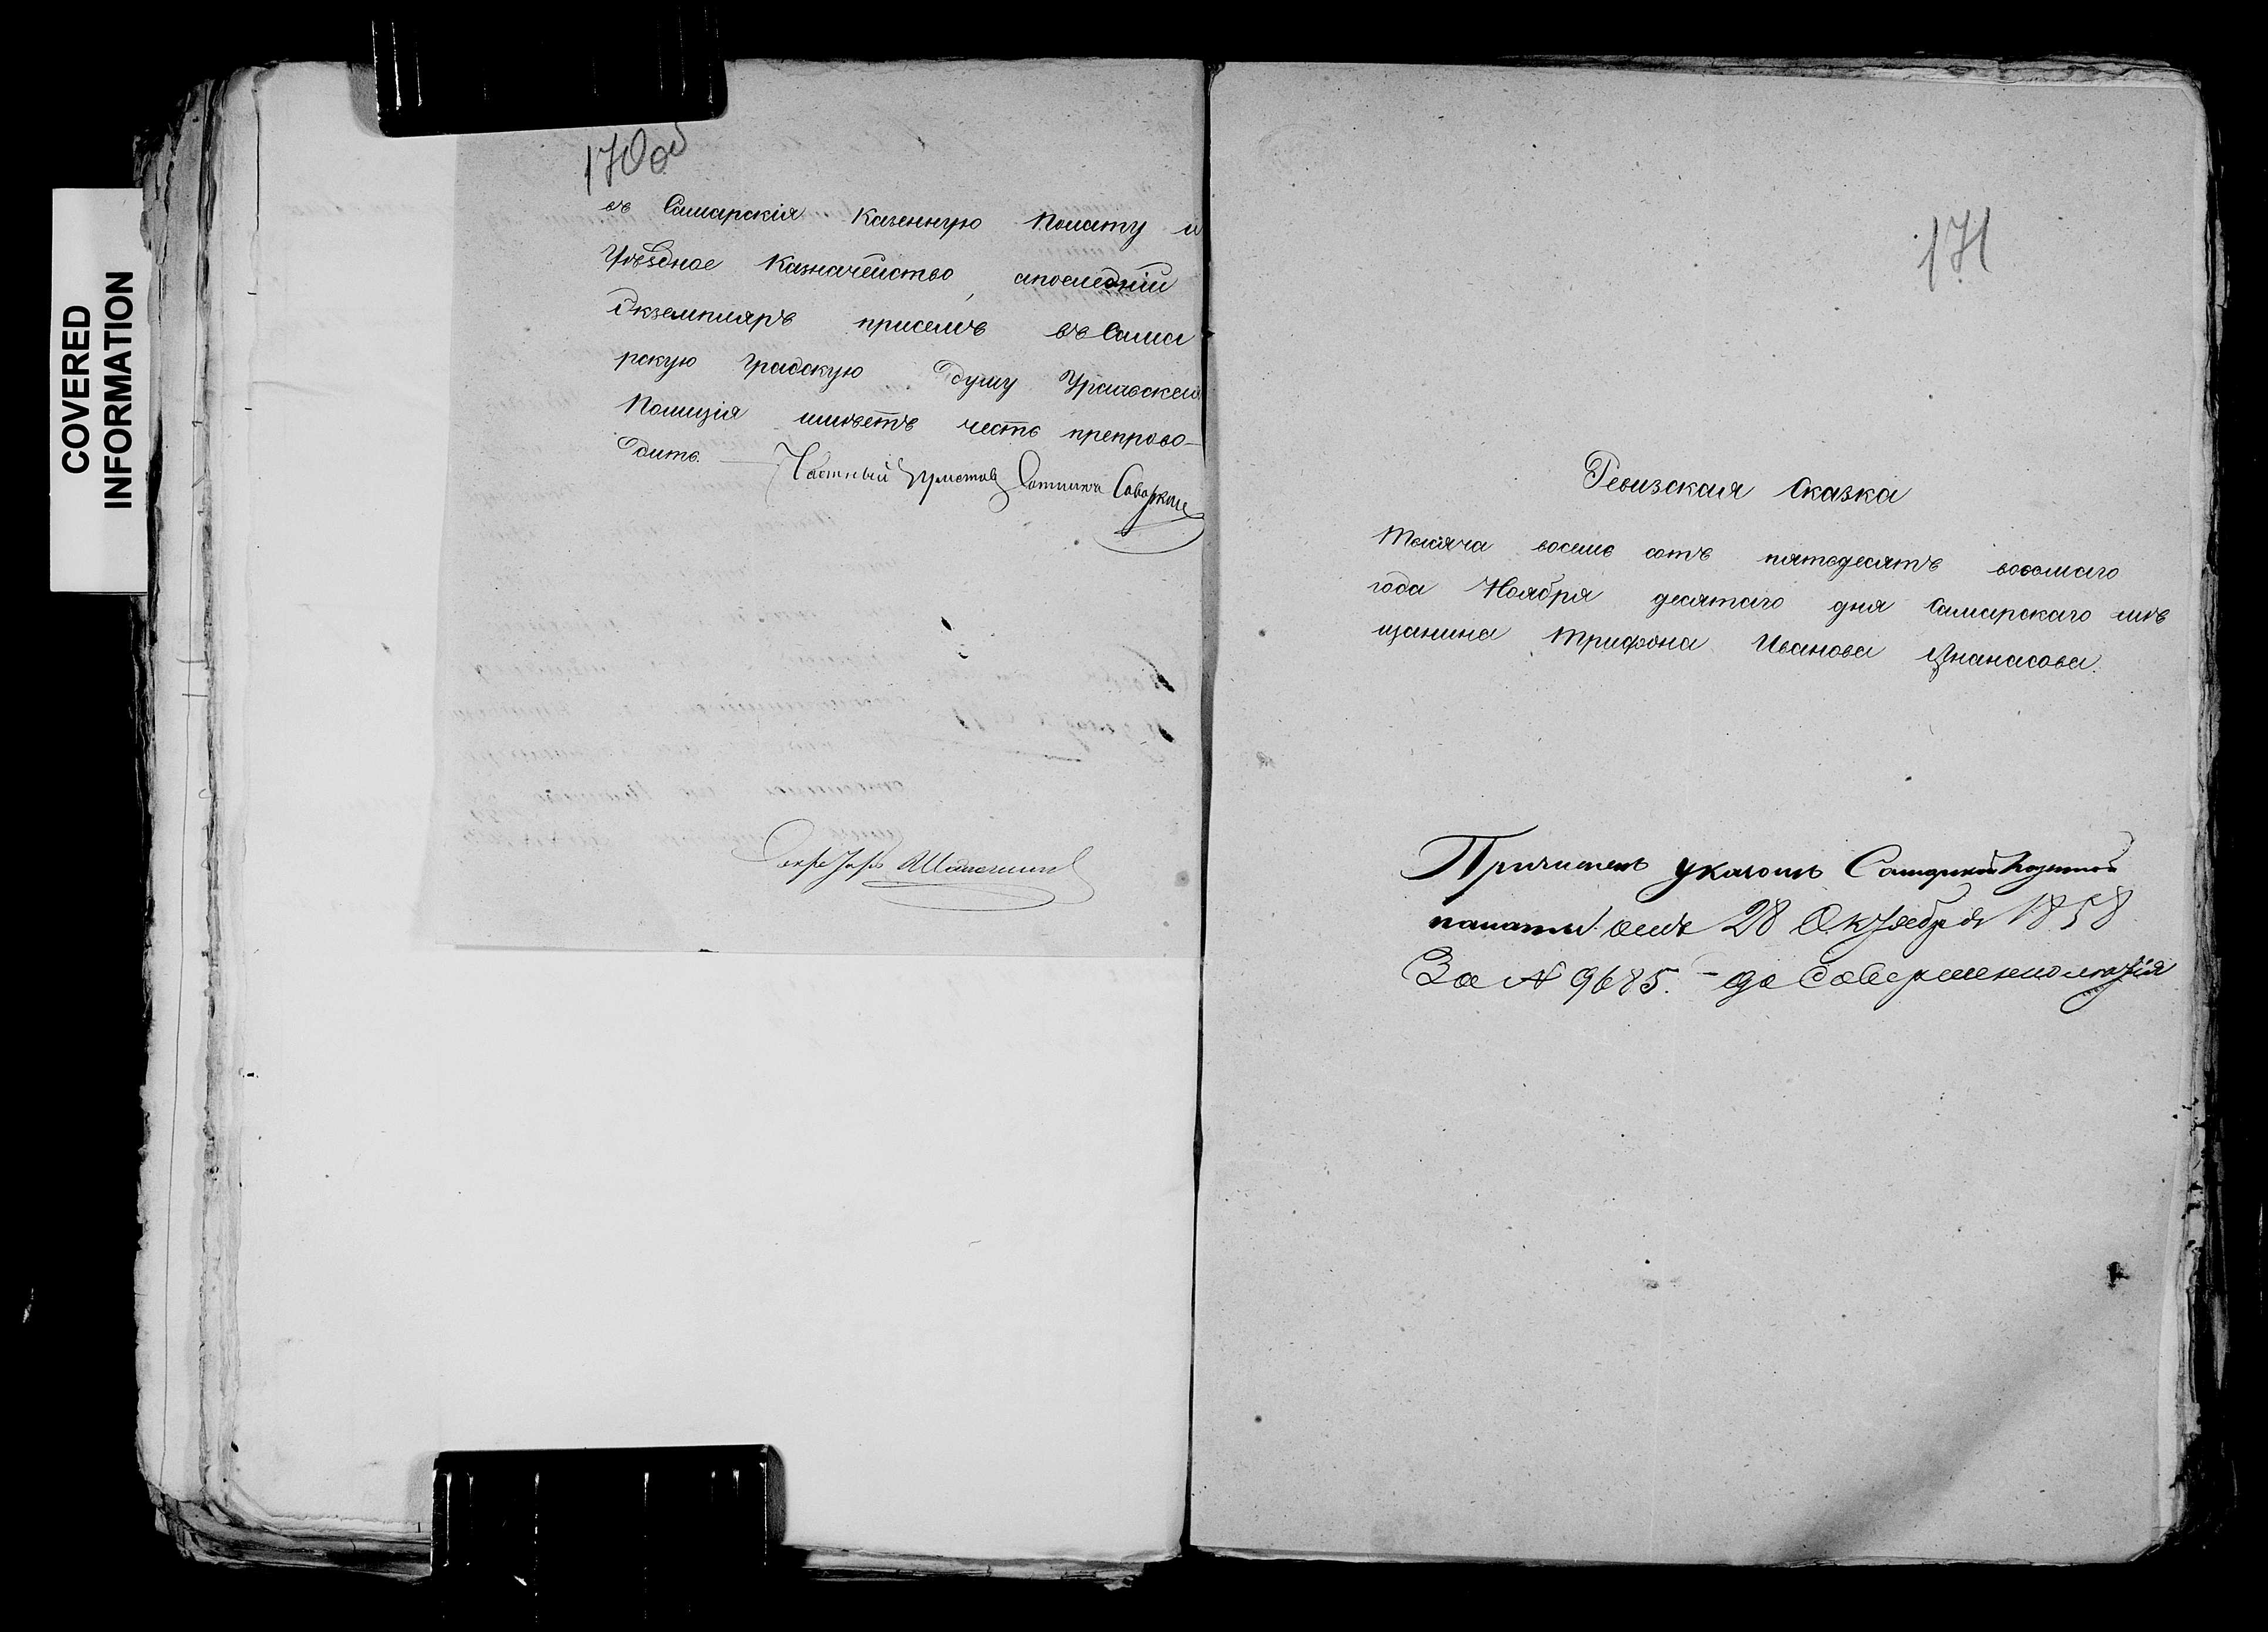 COVERED
INFORMATION
170об
въ Самарскія Казенную Полату и
Уѣздное Казначейство, апоследній
Экземпляръ приселъ въ Сама
рскую Градскую Думу Уральская
Полиція имѣетъ честь препрово-
дить. Частный Приставъ Сотникъ
Секретарь
171
Ревизская Сказка
Тысяча восемь сотъ пятьдесятъ восьмаго
года Ноября десятаго дня Самарскаго мѣ
щанина Трифона Иванова Ананасова.
Причисленъ указомъ Самарской Казенной
палаты отъ 28 Октября 1858
За № 9685. - до совершеннолѣтія